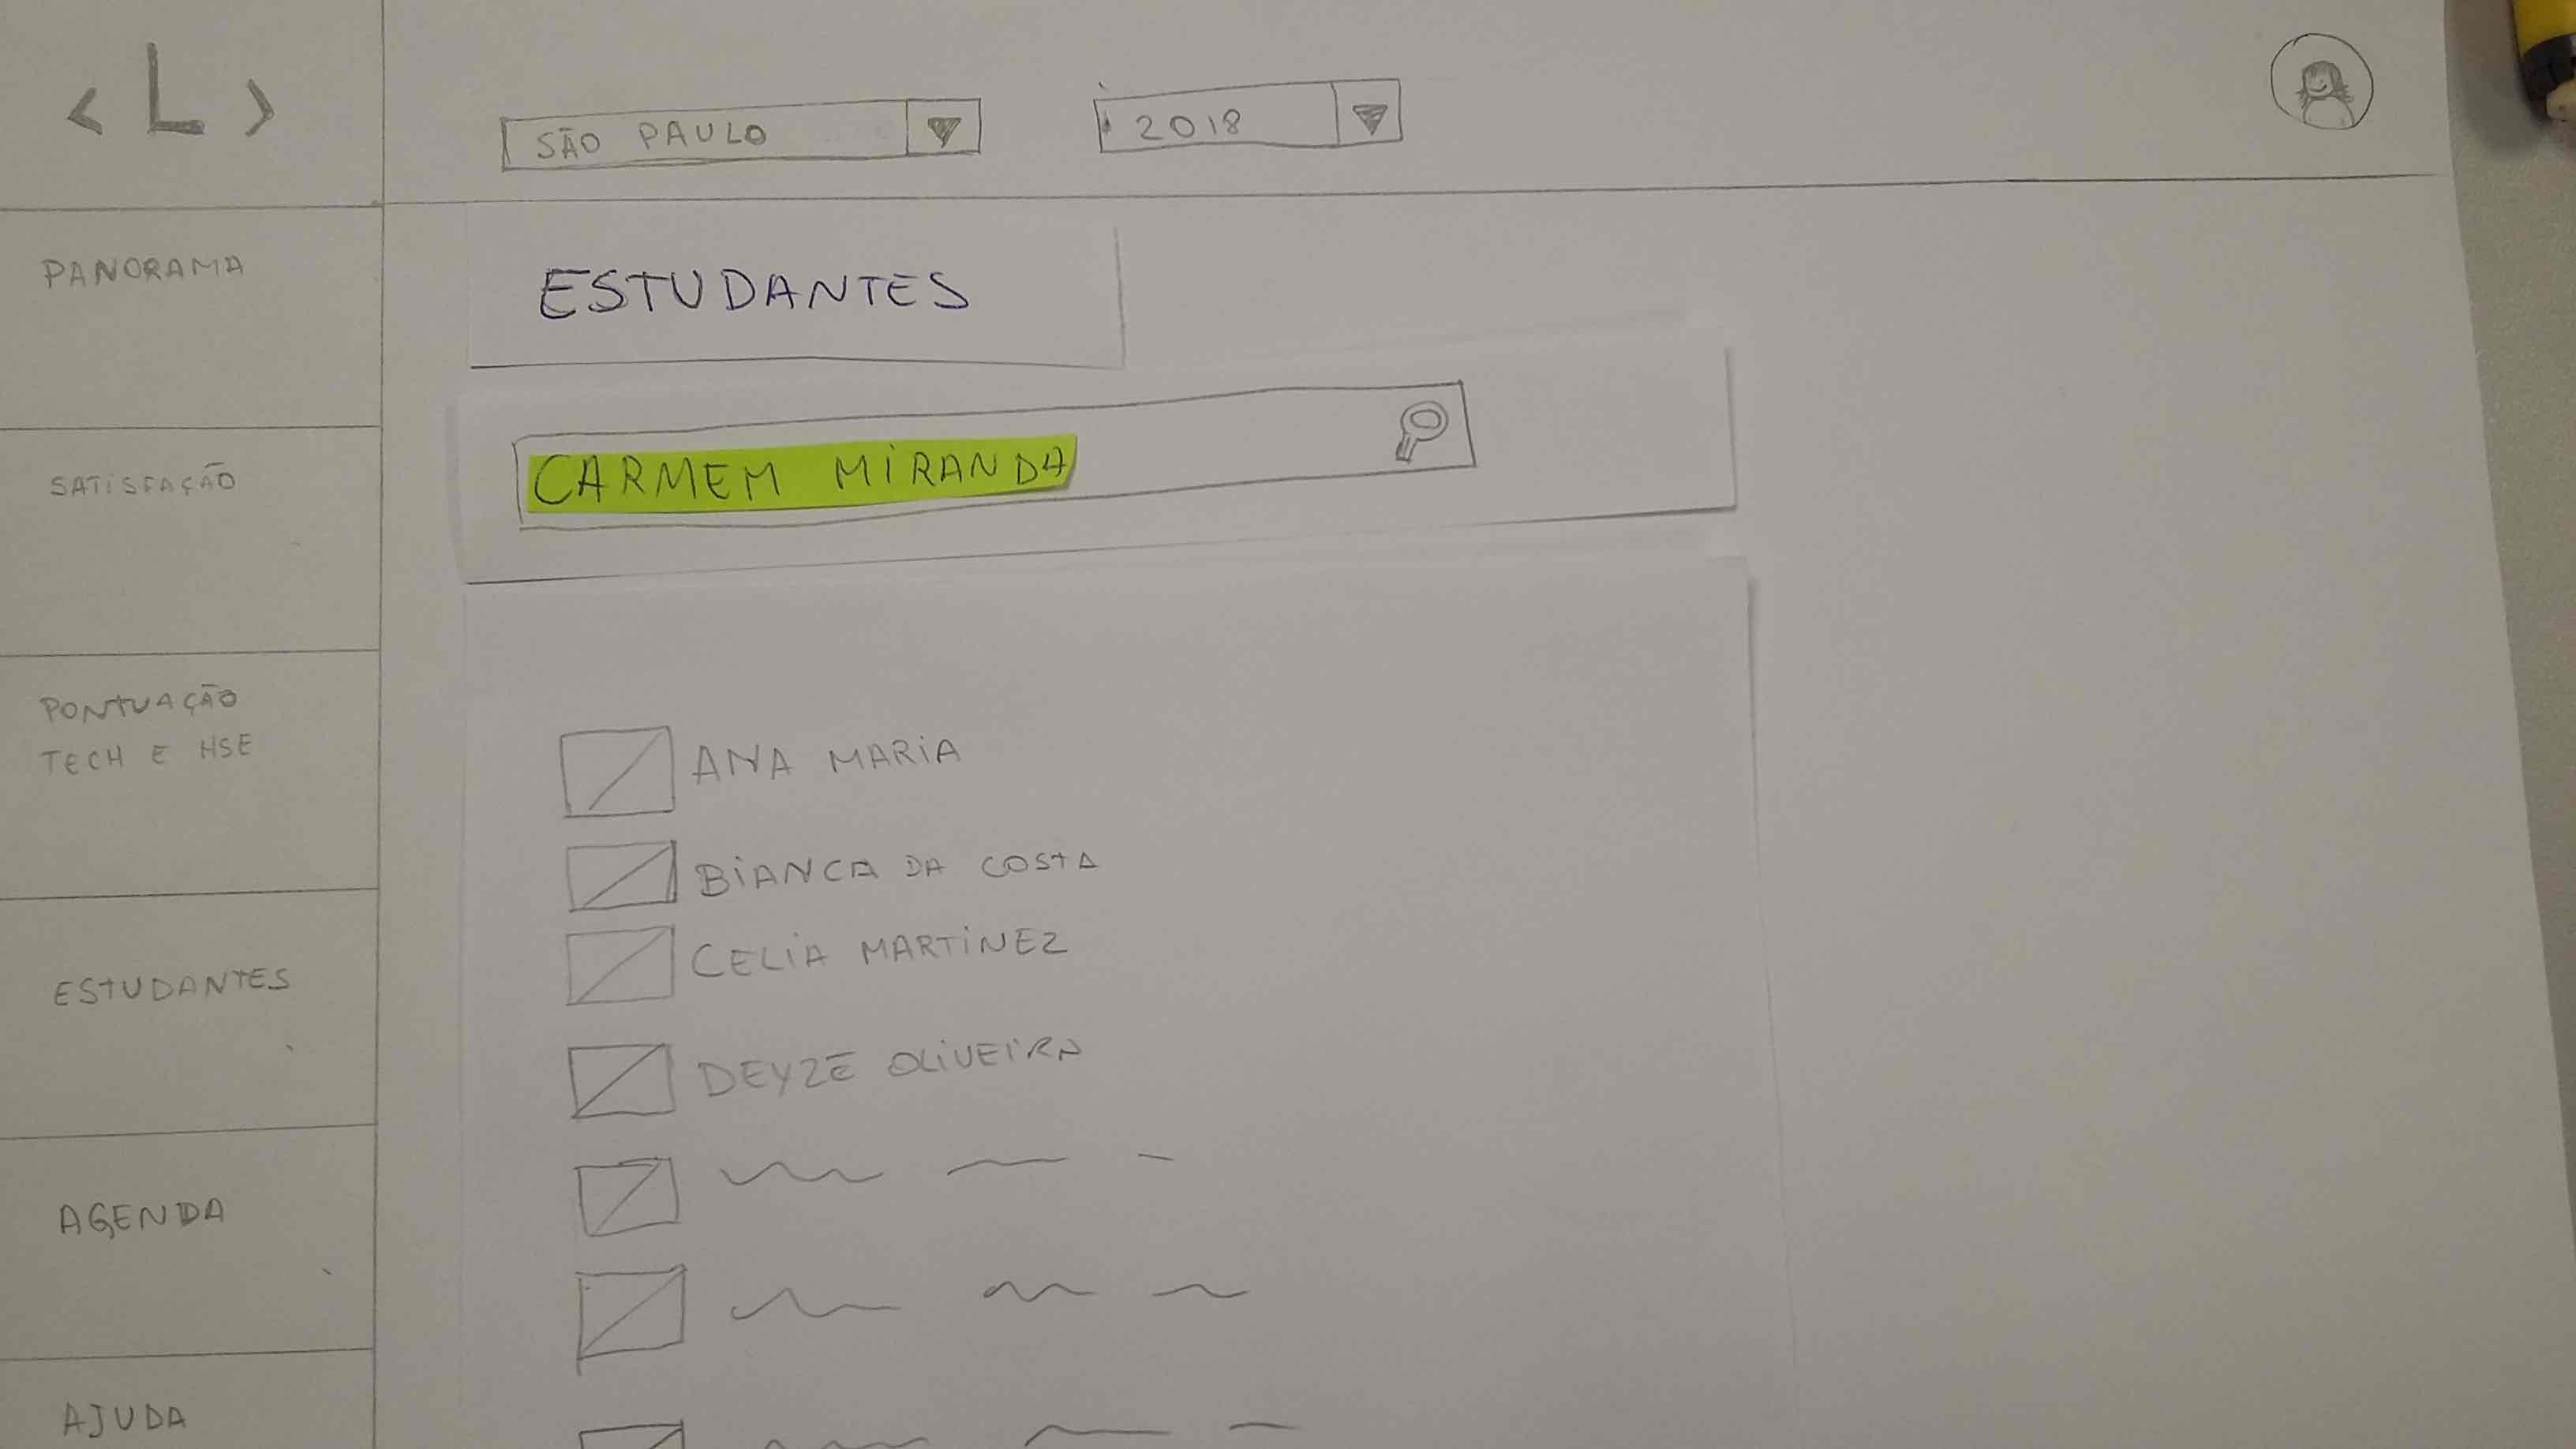 < L >
SÃO PAULO
2018
PANORAMA
SATISFAÇÃO
PONTUAÇÃO
TECH E HSE
ESTUDANTES
AGENDA
AJUDA
ESTUDANTES
CARMEM MIRANDA
ANA MARIA
BIANCA DA COSTA
CELIA MARTINEZ
DEYZE OLIVEIRA